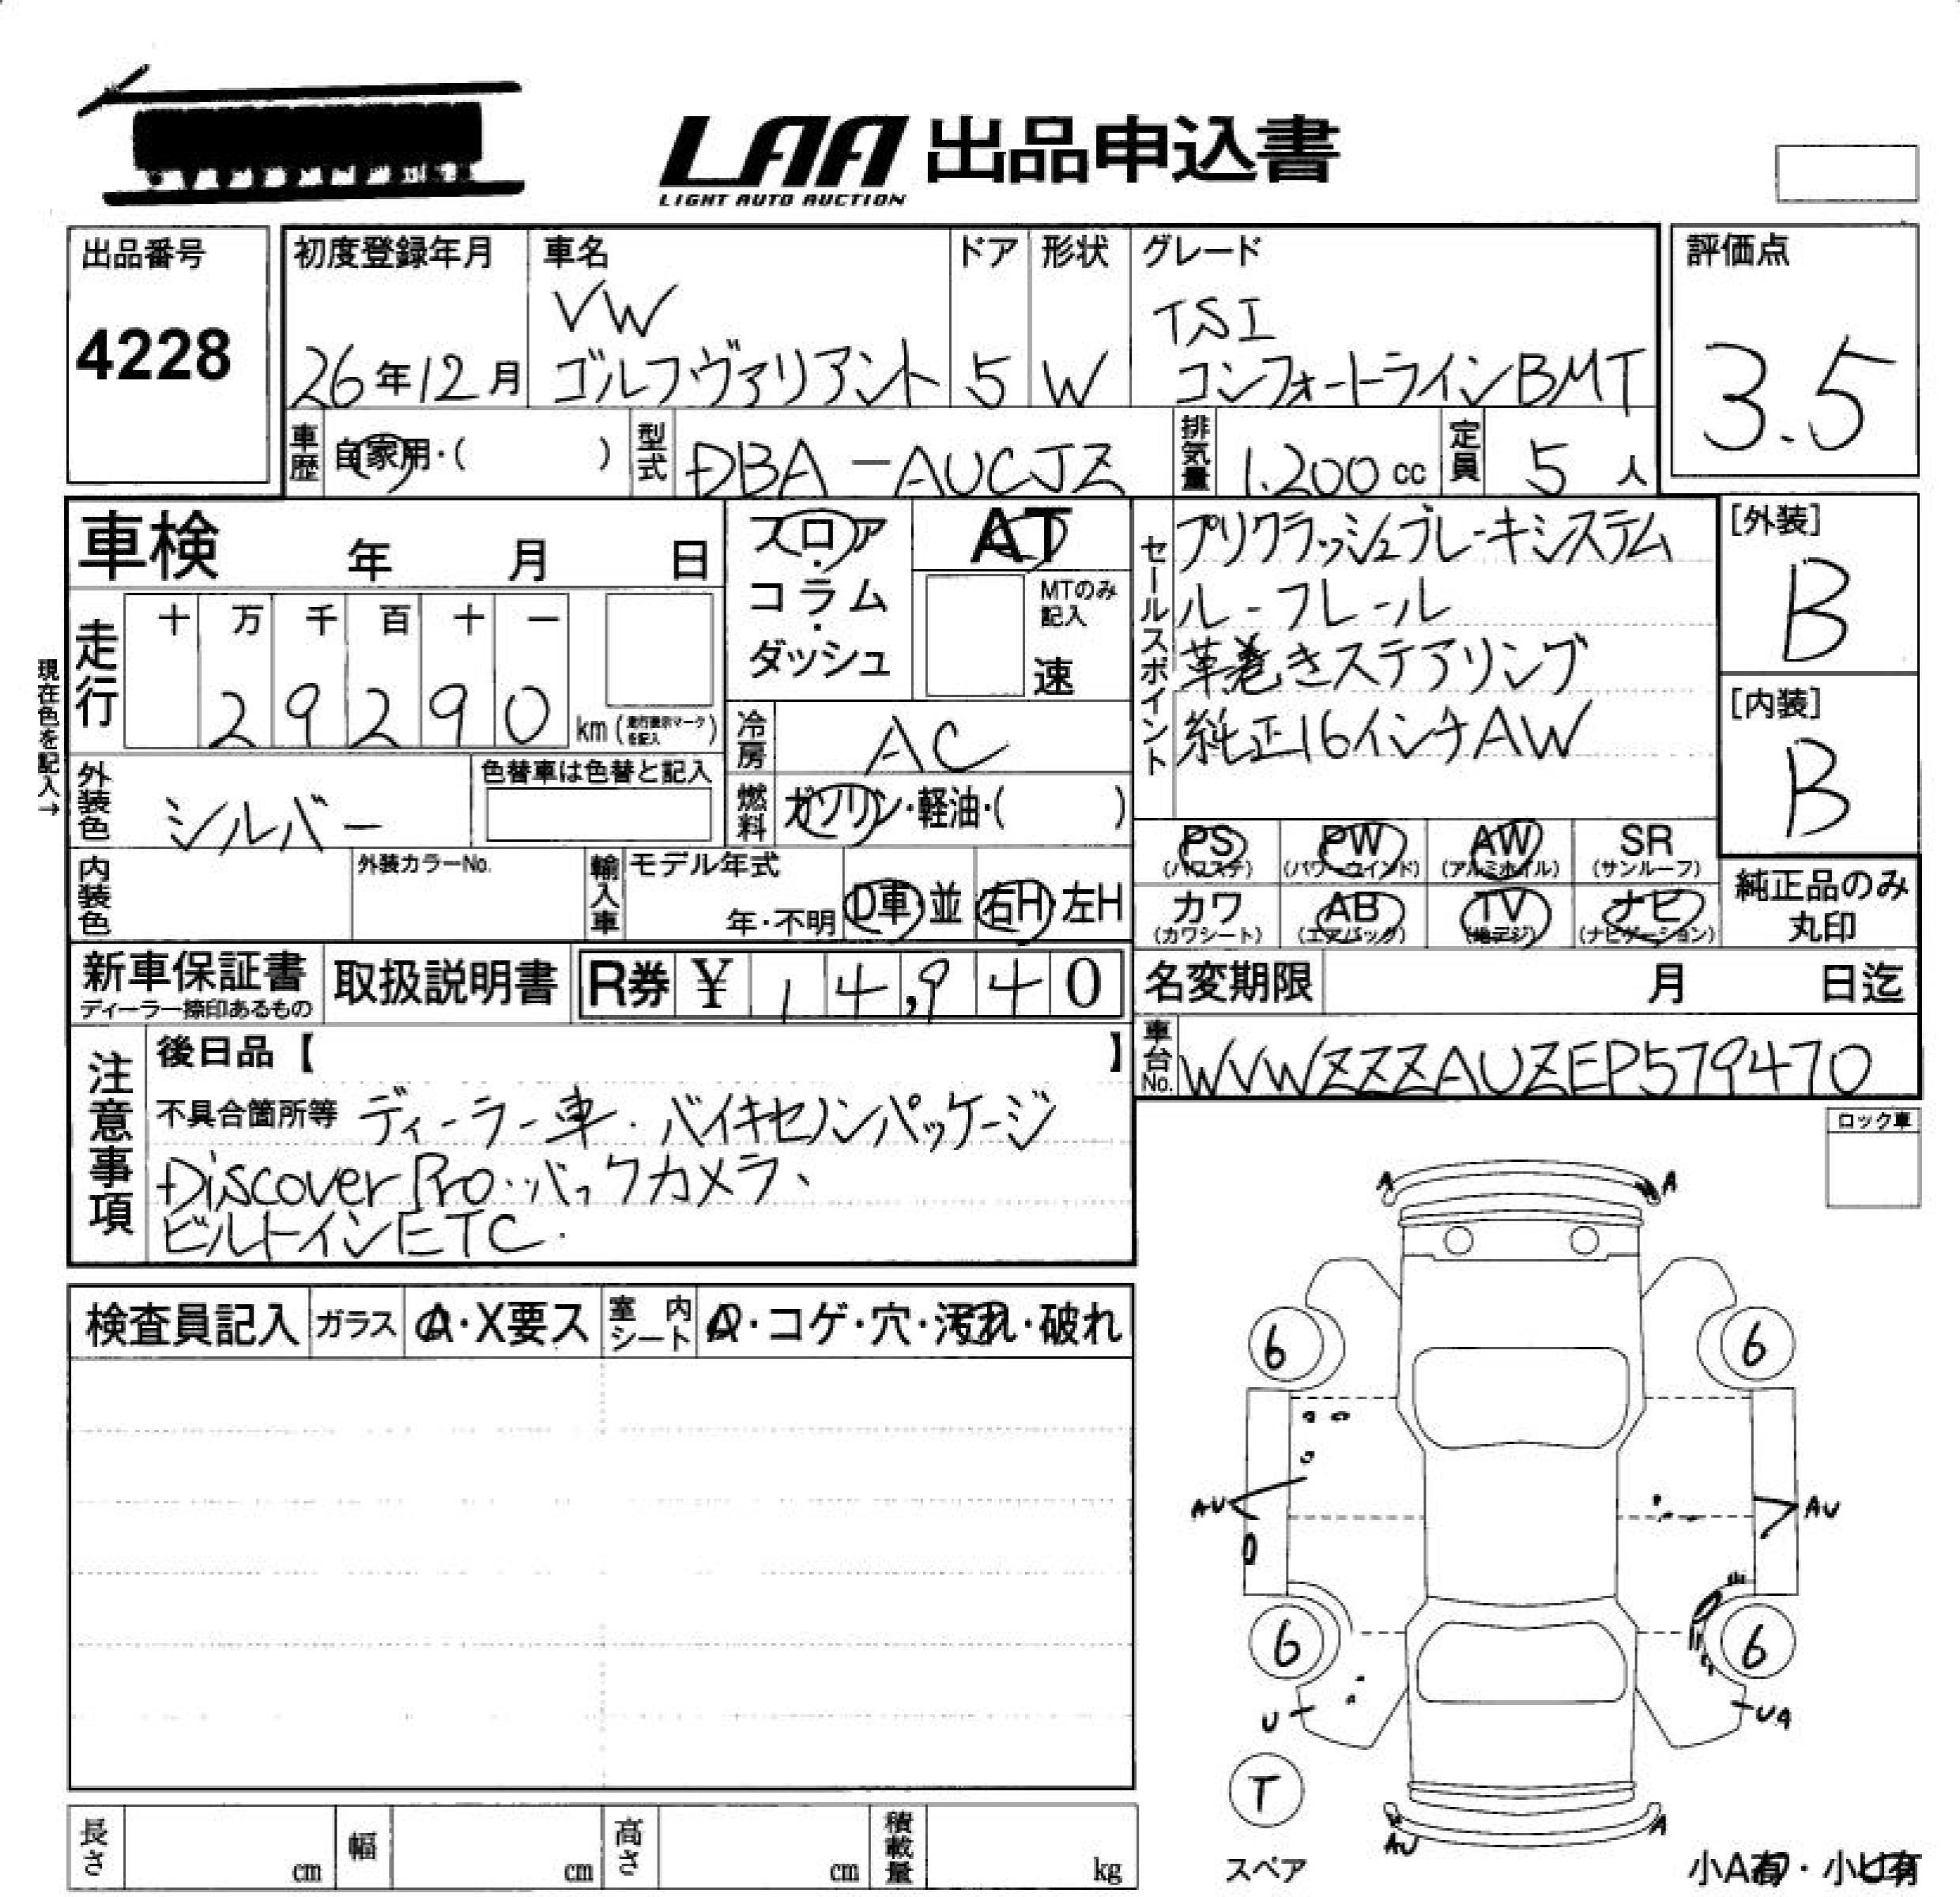 LAA 出品申込書
LIGHT AUTO AUCTION
出品番号
4228
初度登録年月
26年12月
車名
VW
ゴルフヴァリアント
ドア
5
形状
W
グレード
TSI
コンフォートラインBMT
評価点
3.5
車歴 自家用・( )
型式 DBA-AUCJZ
排気量 1.200cc
定員 5人
車検 年 月 日
フロア・コラム・ダッシュ
AT
MTのみ記入
速
セールスポイント
プリクラッシュブレーキシステム
ルーフレール
革巻きステアリング
純正16インチAW
[外装]
B
[内装]
B
現在色を記入→
走行
十 万 千 百 十 一
2 9 2 9 0 km (走行表示マークを記入)
冷房 AC
外装色 シルバー
色替車は色替と記入
燃料 ガソリン・軽油・( )
PS (パワステ) PW (パワーウインド) AW (アルミホイル) SR (サンルーフ)
カワ (カワシート) AB (エアバック) TV (地デジ) ナビ (ナビゲーション)
純正品のみ丸印
内装色
外装カラーNo.
輸入車 モデル年式 年・不明 D車・並 右H・左H
新車保証書
ディーラー捺印あるもの
取扱説明書
R券 ¥ 14,940
名変期限 月 日迄
車台No. WVWZZZAUZEP579470
注意事項
後日品【 】
不具合箇所等 ディーラー車.バイキセノンパッケージ
Discover Pro..バックカメラ、
ビルトインETC.
ロック車
検査員記入 ガラス A・X要ス 室内シート A・コゲ・穴・汚れ・破れ
A A
6 6
AU AU
6 6
U UA
T
スペア
AU A
小A有・小U有
長さ cm 幅 cm 高さ cm 積載量 kg